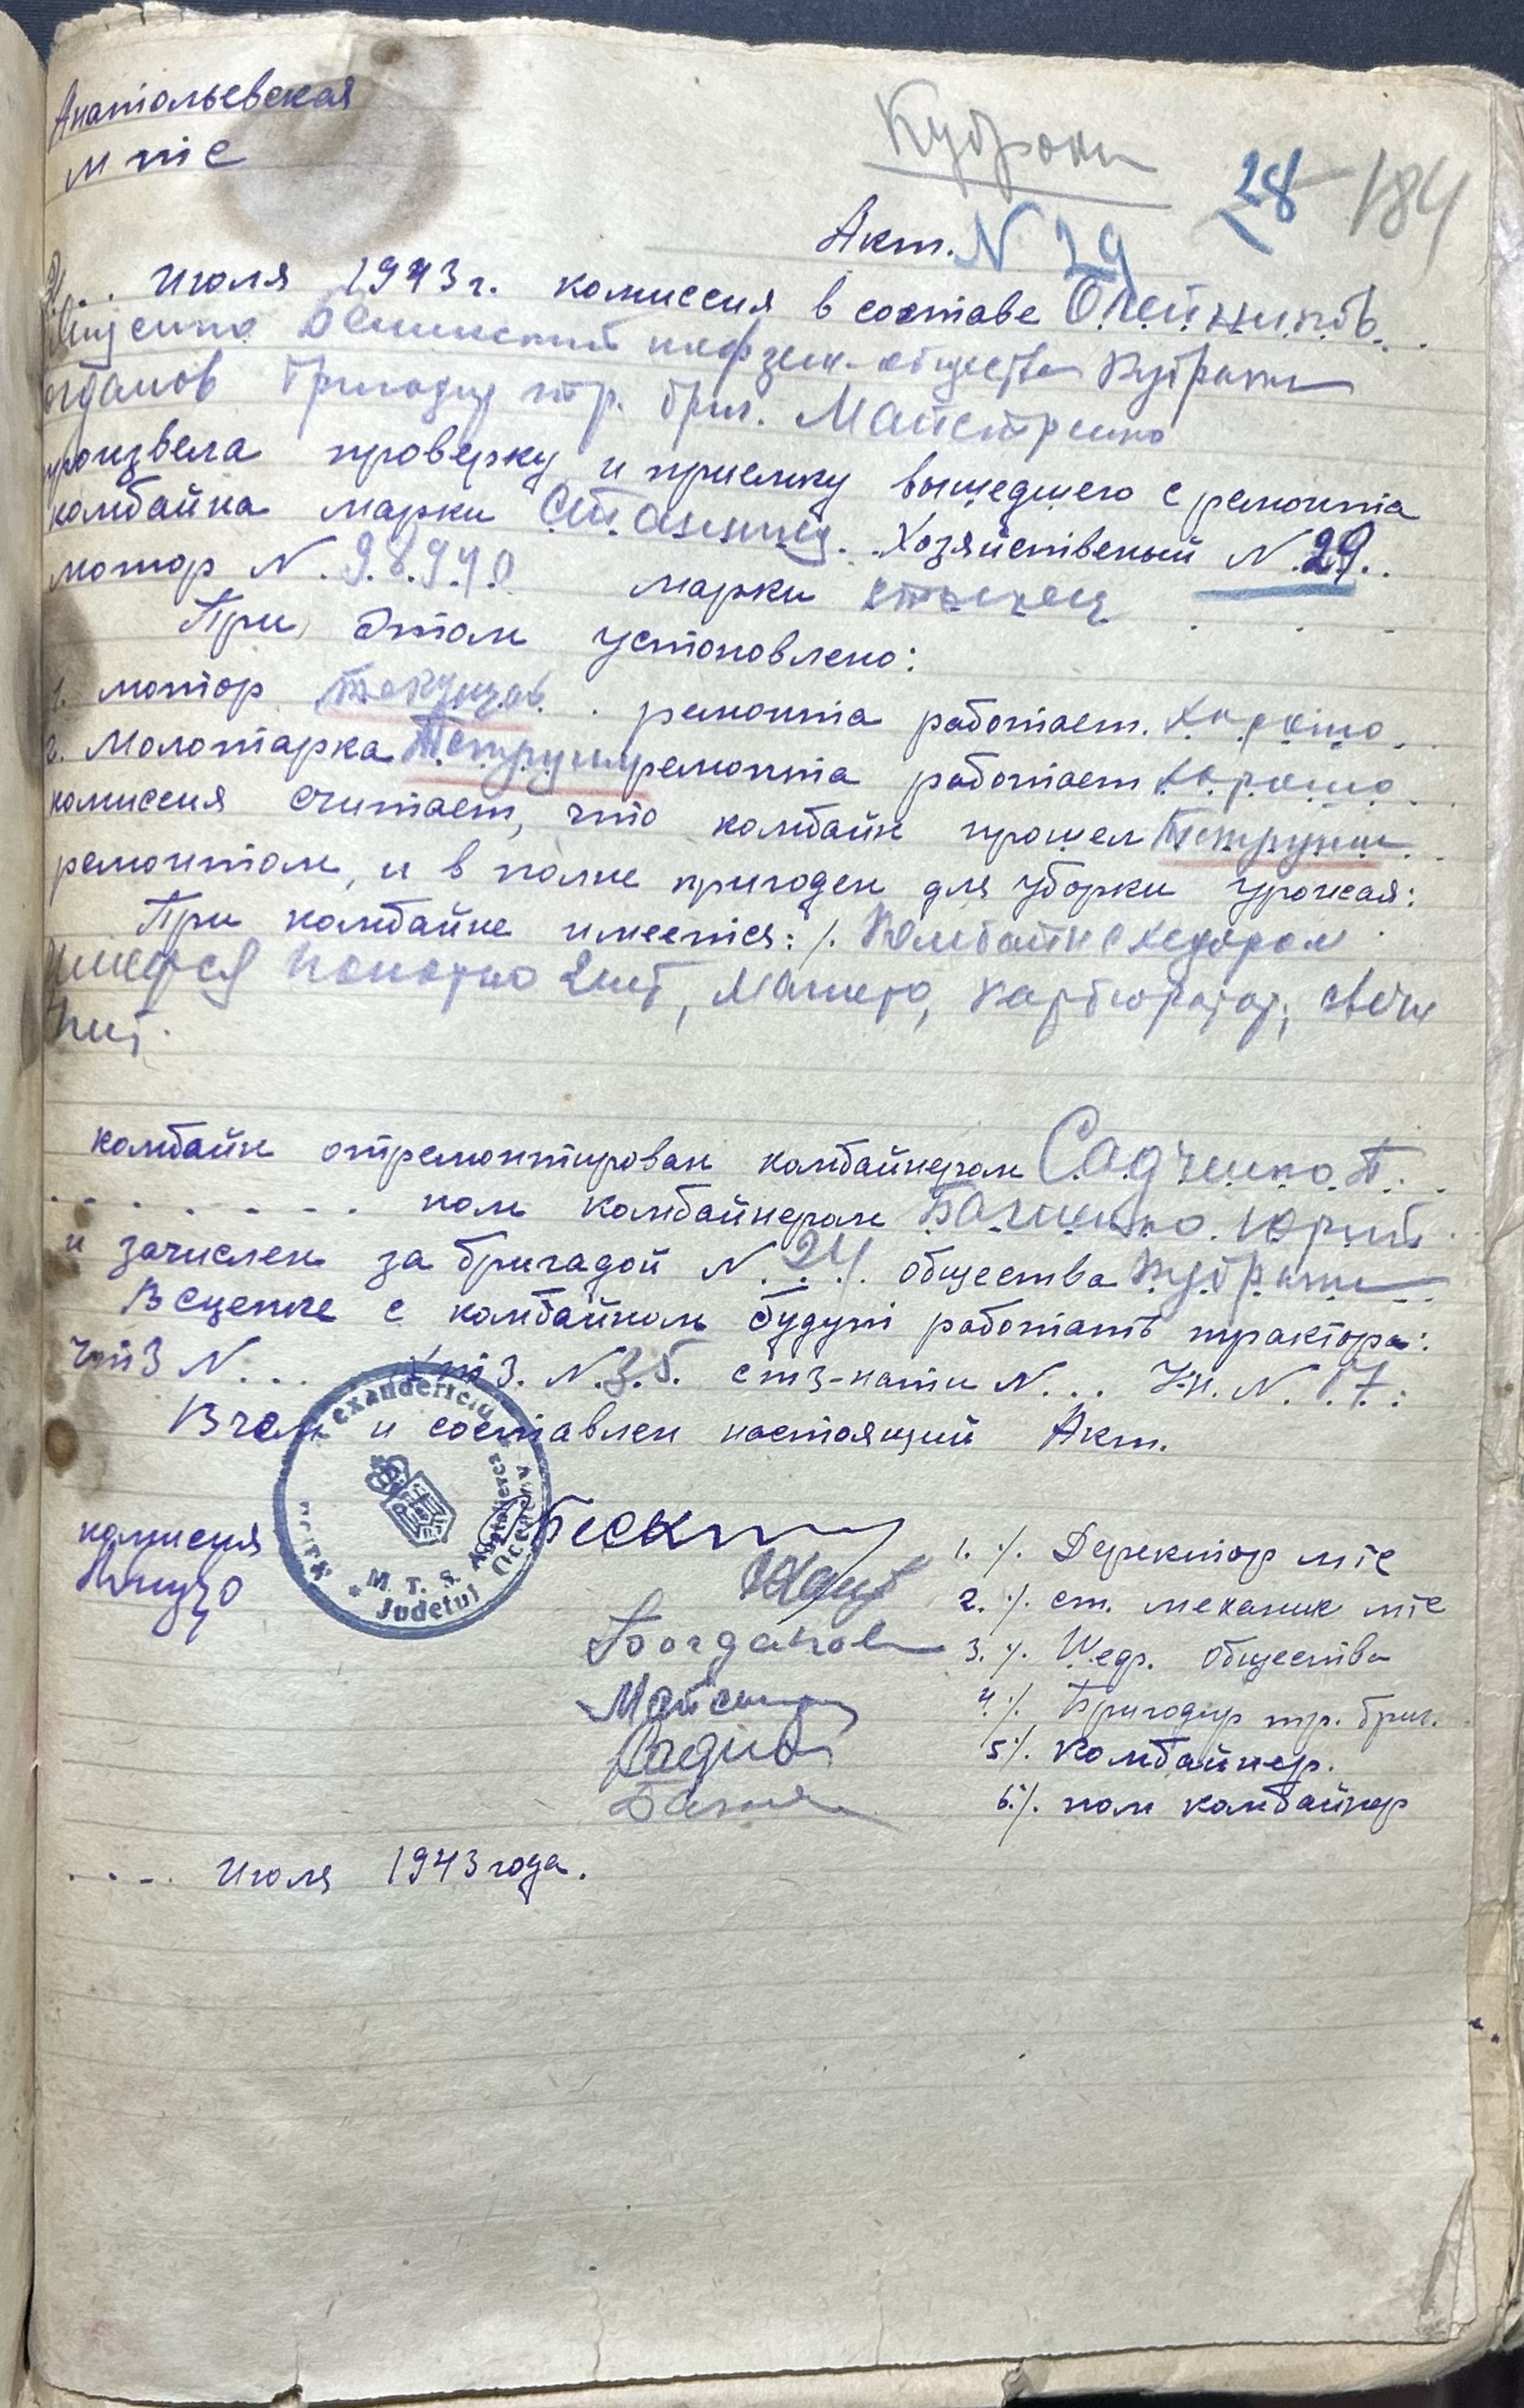 Анатольевская
мтс
Кудряки
28 184
Акт. N 29
Июля 1943 г. комиссия в составе Олейников
общества Кудряки
Бригадир тр. бриг. Майстренко
произвела проверку и приемку вышедшего с ремонта
комбайна марки Сталинец. Хозяйственый N. 29..
мотор N. 98940 марки сталинец
При этом установлено:
1. мотор текущов. ремонта работает. хорошо
2. Молотарка Текущим ремонта работает хорошо
комиссия считает, что комбайн прошел Текущим
ремонтом, и в полне пригоден для уборки урожая:
При комбайне имеется: 1. Комбайн с хедером
имеется полотно 2шт, магнето, карбюратор, свечи
4шт.
комбайн отремонтирован комбайнером Садченко П.
. . . . . . . пом комбайнером Юрий
и зачислен за бригадой N. 24. общества Кудряки
В сцепке с комбайном будут работать трактора:
чтз N... хтз. N. 35. стз-нати N... У-н. N. 17.:
В чем и составлен настоящий Акт.
комисия
M. T. S.
Judetul Oceacov
1. ./. Деректор мтс
Богданов
2. ./. ст. механик мтс
3. ./. Шеф. общества
4. ./. Бригадир тр. бриг.
5./. Комбайнер.
6./. пом комбайнер
.... Июля 1943 года.